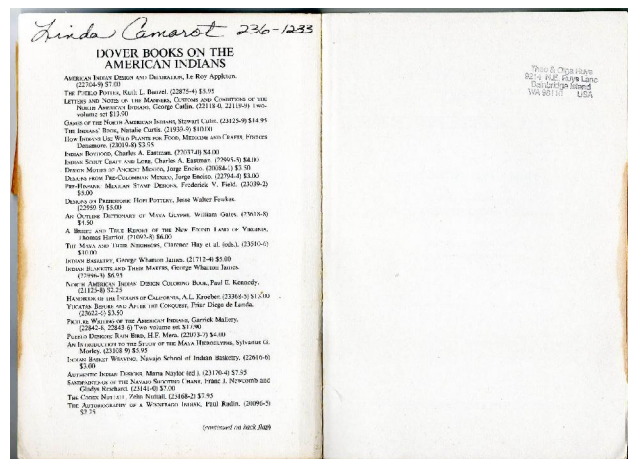 Linda Camarot 236-1233
DOVER BOOKS ON THE
AMERICAN INDIANS
AMERICAN INDIAN DESIGN AND DECORATION, Le Roy Appleton.
(22704-9) $7.00
THE PUEBLO POTTER, Ruth L. Bunzel. (22875-4) $5.95
LETTERS AND NOTES ON THE MANNERS, CUSTOMS AND CONDITIONS OF THE
NORTH AMERICAN INDIANS, George Catlin. (22118-0, 22119-9) Two-
volume set $13.90
GAMES OF THE NORTH AMERICAN INDIANS, Stewart Culin. (23125-9) $14.95
THE INDIANS' BOOK, Natalie Curtis. (21939-9) $10.00
HOW INDIANS USE WILD PLANTS FOR FOOD, MEDICINE AND CRAFTS, Frances
Densmore. (23019-8) $3.95
INDIAN BOYHOOD, Charles A. Eastman. (22037-0) $4.00
INDIAN SCOUT CRAFT AND LORE, Charles A. Eastman. (22995-5) $4.00
DESIGN MOTIFS OF ANCIENT MEXICO, Jorge Enciso. (20084-1) $3.50
DESIGNS FROM PRE-COLUMBIAN MEXICO, Jorge Enciso. (22794-4) $3.00
PRE-HISPANIC MEXICAN STAMP DESIGNS, Frederick V. Field. (23039-2)
$5.00
DESIGNS ON PREHISTORIC HOPI POTTERY, Jesse Walter Fewkes.
(22959-9) $5.00
AN OUTLINE DICTIONARY OF MAYA GLYPHS, William Gates. (23618-8)
$4.50
A BRIEF AND TRUE REPORT OF THE NEW FOUND LAND OF VIRGINIA,
Thomas Harriot. (21092-8) $6.00
THE MAYA AND THEIR NEIGHBORS, Clarence Hay et al. (eds.). (23510-6)
$10.00
INDIAN BASKETRY, George Wharton James. (21712-4) $5.00
INDIAN BLANKETS AND THEIR MAKERS, George Wharton James.
(22996-3) $6.95
NORTH AMERICAN INDIAN DESIGN COLORING BOOK, Paul E. Kennedy.
(21125-8) $2.25
HANDBOOK OF THE INDIANS OF CALIFORNIA, A.L. Kroeber. (23368-5)
YUCATAN BEFORE AND AFTER THE CONQUEST, Friar Diego de Landa.
(23622-6) $3.50
PICTURE WRITING OF THE AMERICAN INDIANS, Garrick Mallery.
(22842-8, 22843-6) Two volume set $17.90
PUEBLO DESIGNS: RAIN BIRD, H.P. Mera. (22073-7) $4.00
AN INTRODUCTION TO THE STUDY OF THE MAYA HIEROGLYPHS, Sylvanus G.
Morley. (23108-9) $5.95
INDIAN BASKET WEAVING, Navajo School of Indian Basketry. (22616-6)
$3.00
AUTHENTIC INDIAN DESIGNS, Maria Naylor (ed.). (23170-4) $7.95
SANDPAINTINGS OF THE NAVAJO SHOOTING CHANT, Franc J. Newcomb and
Gladys Reichard. (23141-0) $7.00
THE CODEX NUTTALL, Zelia Nuttall. (23168-2) $7.95
THE AUTOBIOGRAPHY OF A WINNEBAGO INDIAN, Paul Radin. (20096-5)
$2.75
(continued on back flap)
Theo & Olga Huys
9214 N.E. Huys Lane
Bainbridge Island
WA 98110 USA